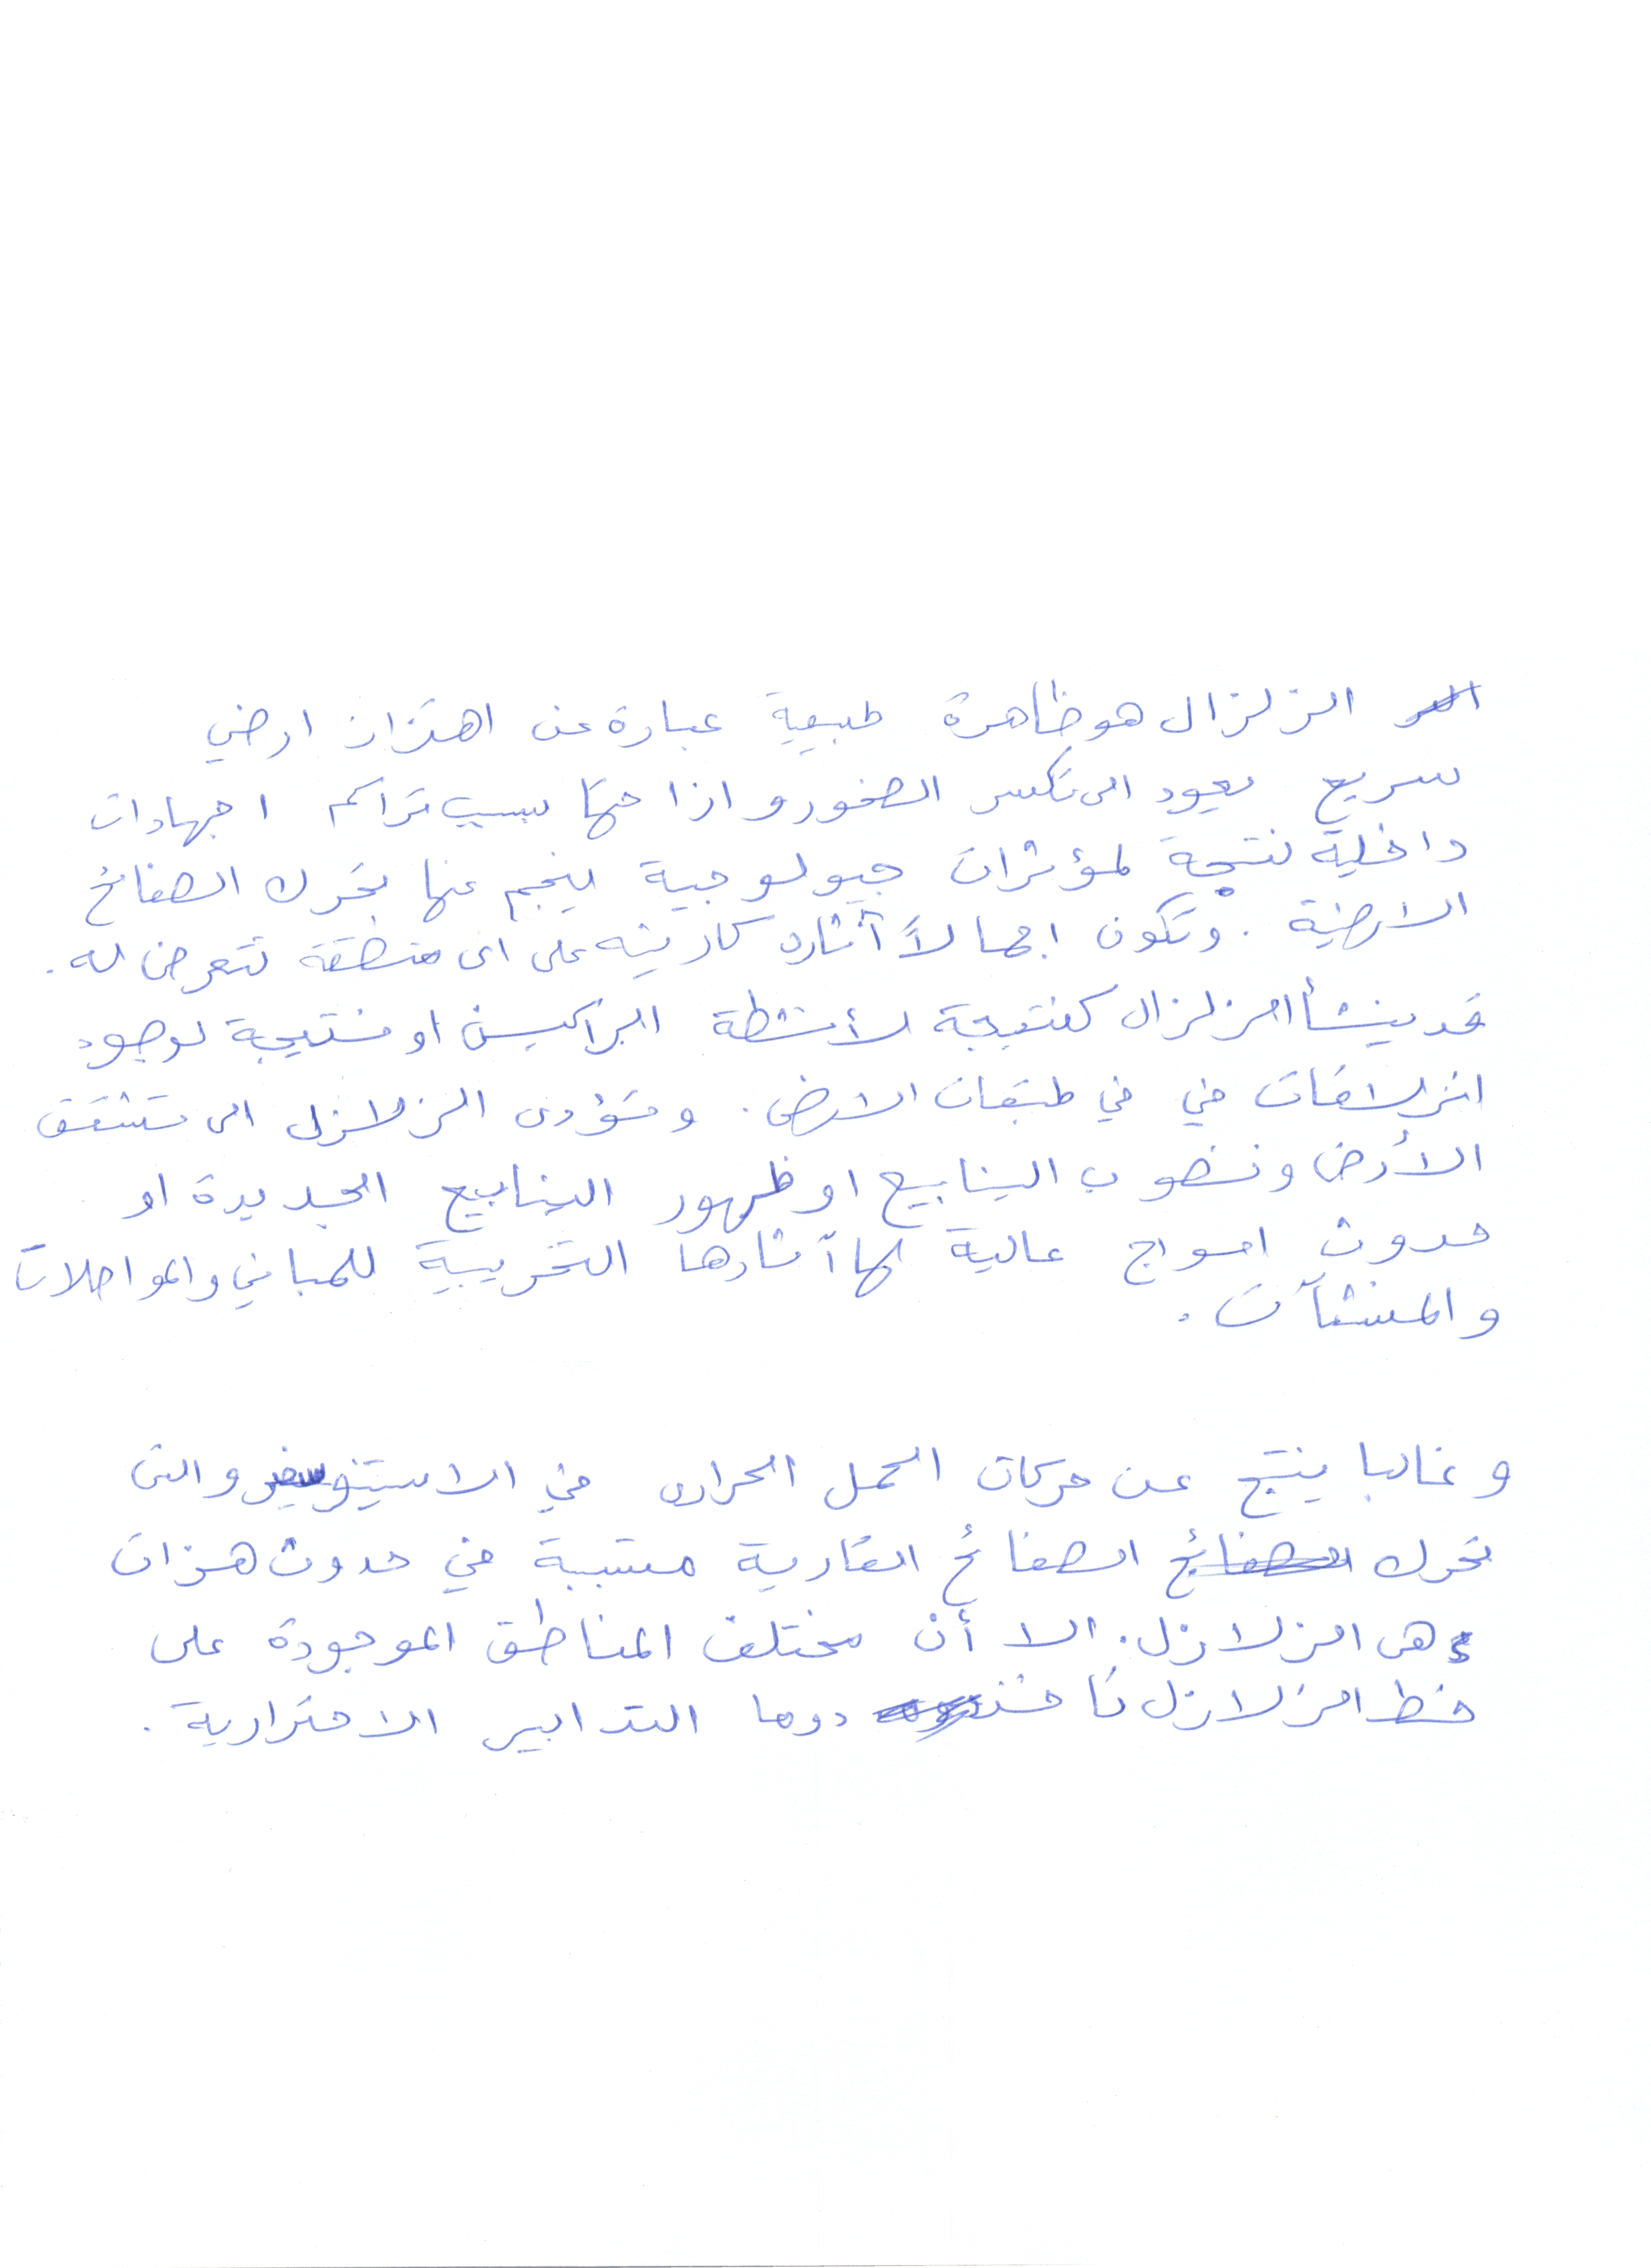 الزلزال هو ظاهرة طبيعية عبارة عن اهتزاز ارضي
سريع يعود الى تكسر الصخور و ازاحتها بسبب تراكم اجهادات
داخلية نتيجة لمؤثرات جيولوجية ينجم عنها تحرك الصفائح
الارضية . وتكون اجمالاً آثاره كارثيه على اى منطقة تتعرض له .
قد ينشأ الزلزال كنتيجة لأنشطة البراكين او نتيجة لوجود
انزلاقات في في طبقات الارض . وتؤدى الزلازل الى تشقق
الأرض ونضوب الينابيع او ظهور الينابيع الجديدة او
حدوث امواج عالية لها آثارها التخريبية للمباني والمواصلات
والمنشآت .
وغالبا ينتج عن حركات الحمل الحرارى في الاستينوسفير والتى
تحرك الصفائح القارية مسببة في حدوث هزات
هى الزلازل . الا أن مختلف المناطق الموجودة على
خط الزلازل تأخذ دوما التدابير الاحترازية .